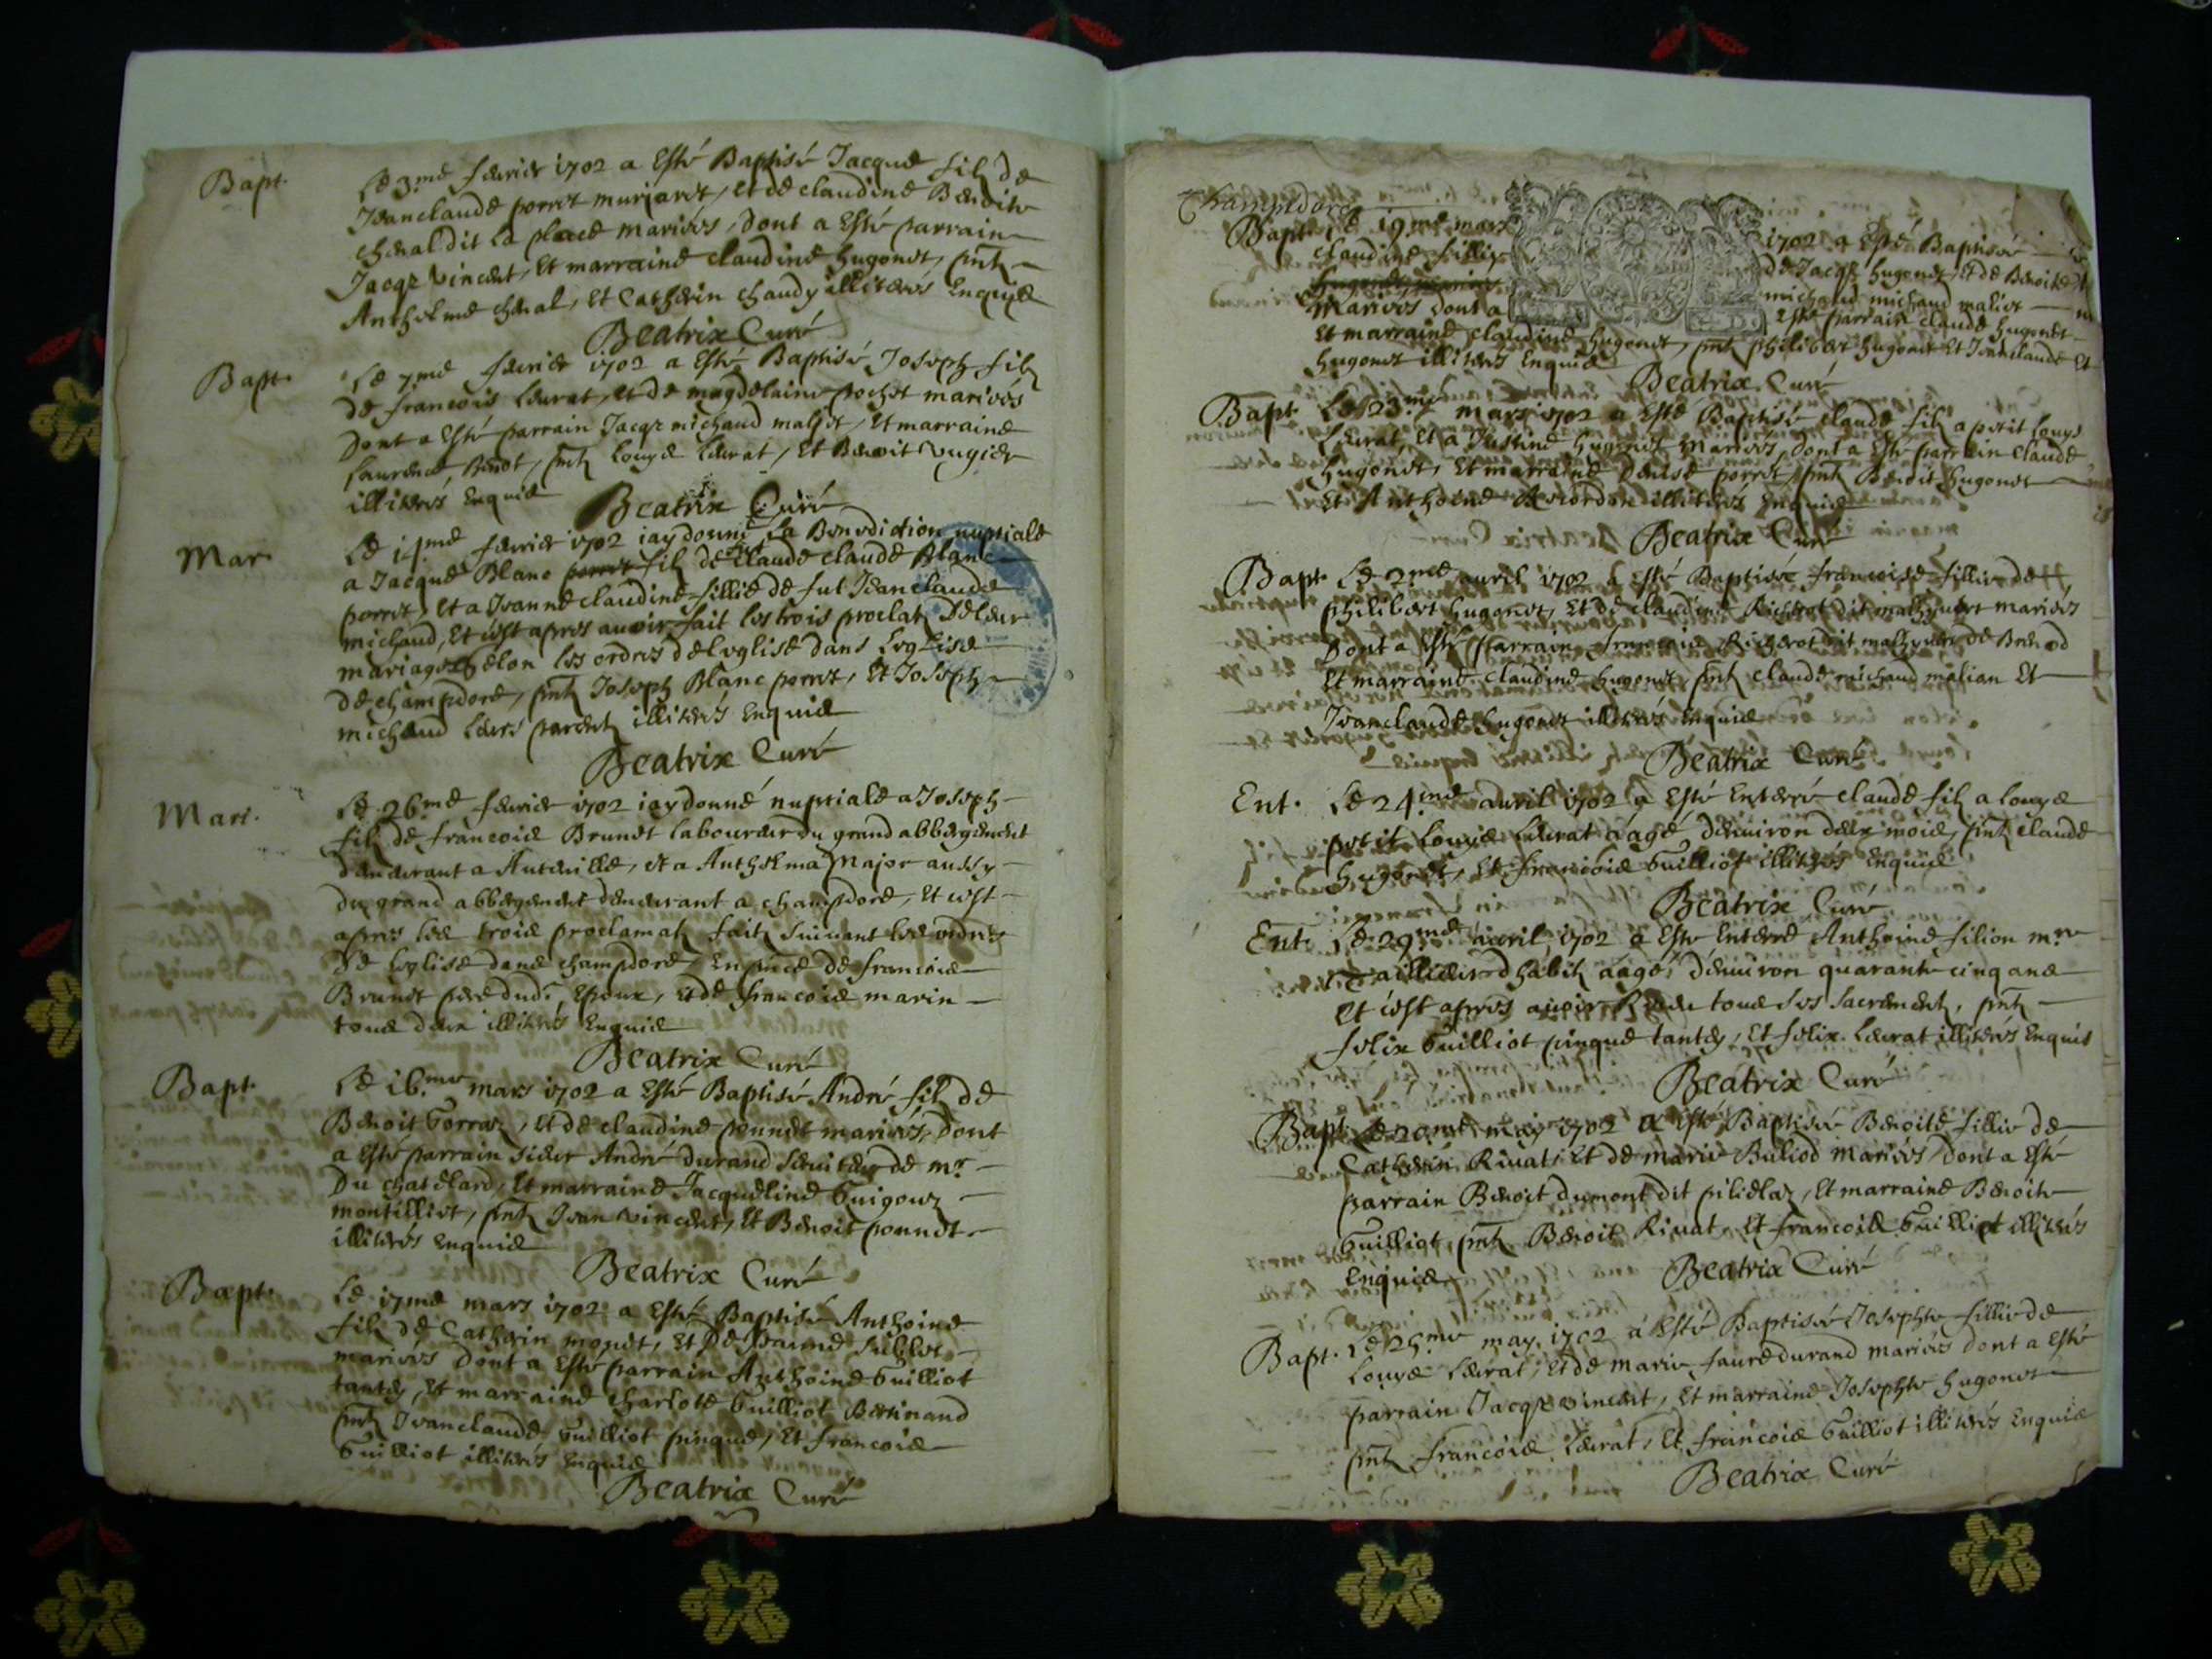 Bapt. Le 3.me febvrier 1702 a Esté Baptisé Jacque filz de
Jeanclaude porret murjaret, et de claudine Benoite
cheval dit la place mariées, dont a Esté parrain
Jacqz vincent, Et marraine claudine hugonet, pntz
Antholme cheval, Et Catherin chaudy illiterés Enquis
Beatrix Curé
Bapt. Le 7.me febvrier 1702 a Esté Baptisé Joseph filz
de francois Levrat, et de magdelaine pochet mariées
Dont a Esté parrain Jacqz michaud maliet, Et marraine
Laurence, pntz Louys Levrat, Et Benoit
illiterés Enquis
Beatrix Curé
Mar. Le 14.me febvrier 1702 jay donné La Benediction nuptiale
a Jacque Blanc porret filz de claude claude Blanc
porret, et a Jeanne claudine fillie de fut Jeanclaude
michaud, Et cest apres auoir fait les trois proclat de leur
mariage selon les ordres de Leglise dans Leglise
de champdore, pntz Joseph Blanc porret, Et Joseph
michaud leurs parentz illiterés Enquis
Beatrix Curé
Mari. Le 26.me febvrier 1702 jay donné nuptiale a Joseph
filz de francois Brunet laboureur du grand abbergement
demeurant a, et a Antholma major aussy
du grand abbergement demeurant a champdore, Et cest
apres les trois proclamatz faitz suivant les ordres
de Leglise dans champdore, En pnce de francois
Brunet pere dudt Epoux, et de francois marin
tous deux illiterés Enquis
Beatrix Curé
Bapt. Le 16.me mars 1702 a Esté Baptisé André filz de
Benoit Gorraz, et de claudine ponnet mariées, Dont
a Esté parrain sieur André durand serviteur de mr
Du chatelard, Et marraine Jacqueline Guigouz
montilliet, pntz Jean vincent, Et Benoit ponnet
illiterés Enquis
Beatrix Curé
Bapt. Le 17.me mars 1702 a Esté Baptisé Anthoine
filz de Catherin monet, Et De Jeanne
mariées Dont a Esté parrain Anthoine Guilliot
tantey, Et marraine charlote Guilliot Bertinand
pntz Jeanclaude Guilliot pinque, Et francois
Guilliot illiterés Enquis
Beatrix Curé
Champdore
Bapt. Le 19.me mars 1702 a Esté Baptisée
claudine fillie de Jacqz hugonet, Et de Benoite
michaud michaud maliet
Mariées dont a Esté parrain claude hugonet
Et marraine claudine hugonet, pntz philibert hugonet Et Jeanclaude
hugonet illiterés Enquis
Beatrix Curé
Bapt. Le 23.me mars 1702 a Esté Baptisé claude filz a petit Louys
Levrat, Et a Justine hugonet mariées, Dont a Esté parrain claude
hugonet, Et marraine Denise porret, pntz Benoit hugonet
Et Anthoine illiterés Enquis
Beatrix Curé
Bapt. Le 2.me avril 1702 a Esté Baptisée francoise fillie de
philibert hugonet, Et de claudine Richerot dit mathyvet mariées
Dont a Esté parrain francois Richerot dit mathyvet de Brenod
Et marraine claudine hugonet, pntz claude michaud malian Et
Jeanclaude hugonet illiterés Enquis
Beatrix Curé
Ent. Le 24.me avril 1702 a Esté Enterré claude filz a Louys
petit Louys Levrat aagé denviron deux mois, pntz claude
hugonet, Et francois Guilliot illiterés Enquis
Beatrix Curé
Ent. Le 29.me avril 1702 a Esté Enterré Anthoine filion mre
Taillieur dhabitz aagé denviron quarante cinq ans
Et cest apres avoir Receu tous ses sacrementz, pntz
felix Guilliot pinque tantey, Et felix Levrat illiterés Enquis
Beatrix Curé
Bapt. Le 20.me may 1702 a Esté Baptisée Benoite fillie de
Catherin Rivat, Et de marie Buliod mariées, dont a Esté
parrain Benoit dumont dit pilielaz, Et marraine Benoite
Guilliot, pntz Benoit Rivat, Et francois Guilliot illiterés
Enquis
Beatrix Curé
Bapt. Le 25.me may 1702 a Esté Baptisée Josephte fillie de
Louys Levrat, Et de marie faure durand mariées dont a Esté
parrain Jacqz vincent, Et marraine Josephte hugonet
pntz francois Levrat, Et francois Guilliot illiterés Enquis
Beatrix Curé